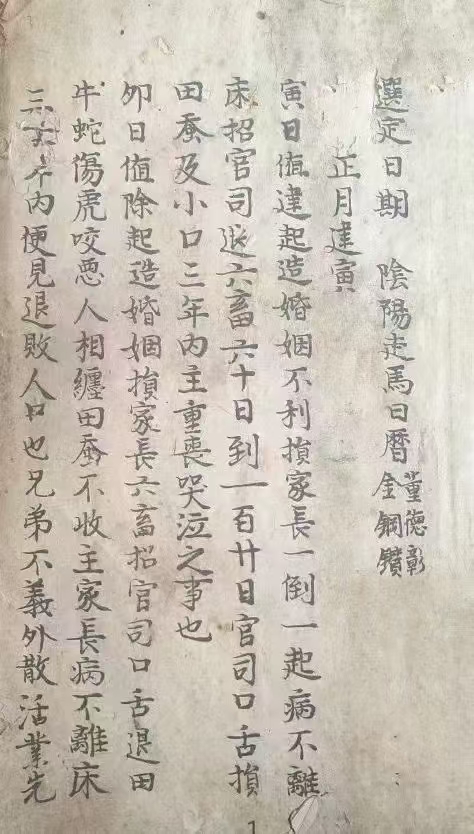 選定日期 陰陽走馬日曆 董德彰 金鋼鑽
正月建寅
寅日值建起造婚姻不利損家長一倒一起病不離
床招官司退六畜六十日到一百廿日官司口舌損
田蚕及小口三年內主重喪哭泣之事也
卯日值除起造婚姻損家長六畜招官司口舌退田
牛蛇傷虎咬惡人相纏田蚕不收主家長病不離床
三六年內便見退敗人口也兄弟不義外散活業先
1